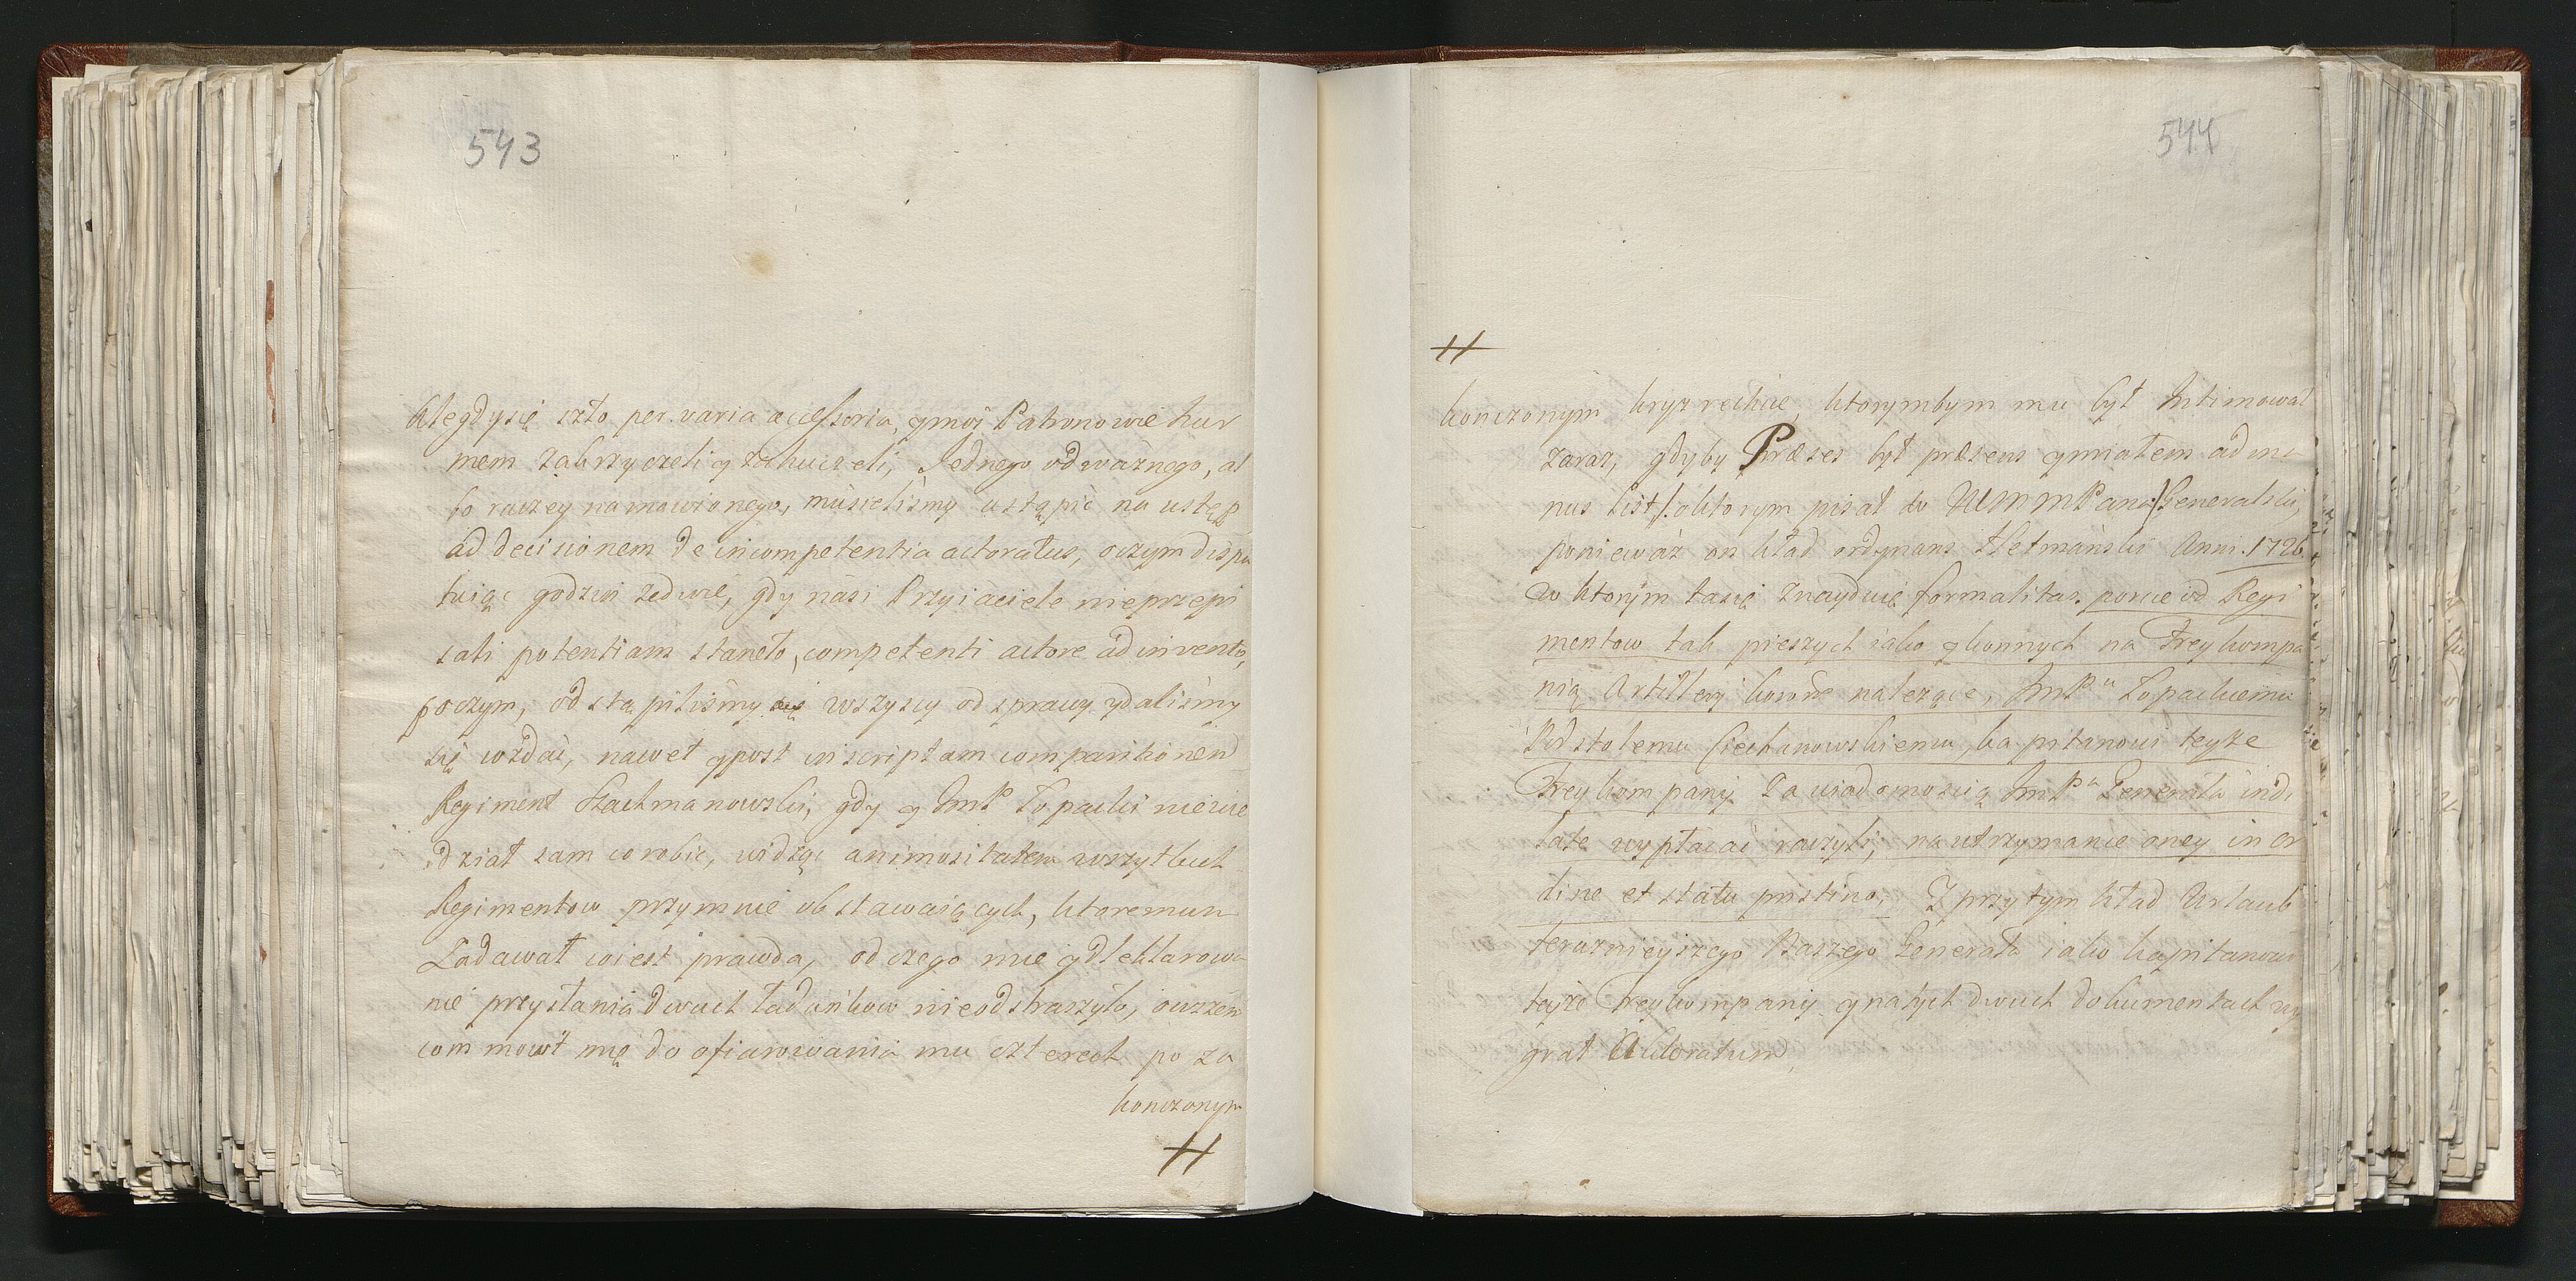 543
Ale gdy się szło per varia accessoria, y moi Patronowie hur
mem zakrzyczeli y zahuczeli, Jednego odważnego, al
bo raczey namowionego, musieliśmy ustąpić na ustęp
ad decisionem de incompetentia actoratus, oczym dispu
tuiąc godzin ze dwie, gdy nasi Przyiaciele nieprzepi
sali potentiam stanęło, competenti actore adinvento,
poczym, odstąpiliśmy wszyscy od sprawy y daliśmy
się wzdać, nawet y post inscriptam comparitionem
Regiment Szackmanowski, gdy y JmP Łopacki niewie
dział sam co robić, widząc animositatem wszytkich
Regimentow przy mnie obstawaiących, ktoremum
Zadawał co iest prawda, od czego mie y dlektarowa
nie przysłania dwuch ładunkow nieodstraszyło, owszem
commowit mię do ofiarowania mu czterech po za
konczonym
544
konczonym kryzrechcie, ktorymbym mu był Intimował
zaraz, gdyby Præses był præsens y miałem ad ma
nus list /: o ktorym pisał do WMM Pana :/ Generalski,
ponieważ on kład ordynans Hetmański Anni. 1726.
w ktorym ta się znayduie formalitas. porcie od Regi
mentow tak pieszych iako y konnych na Freykompa
nią Artillery koronne należące, JmPu Łopackiemu
Podstolemu Ciechanowskiemu, kapitanowi teyże
Freykompanij Za wiadomością JmPa Generała ind.
late wypłacać raczyli, na utrzymanie oney in or
dine et statu pristino, I przytym kład Urlaub
teraznieyszego Naszego Generała iako kapitanowi
teyże Freykompanij y na tych dwuch dokumentach wy
grał Actoratum